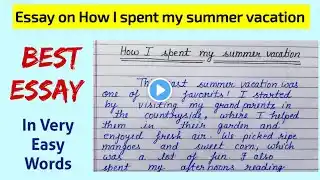 Essay on How I spent my summer vacation
BEST
ESSAY
In Very
Easy
Words
How I spent my summer vacation
past summer vacation was
one of favorits! I started
by visiting my grand parents in
the countryside, where I helped
them in their garden and
enjoyed fresh air. We picked ripe
mangoes and sweet corn, which
was a lot of fun. I also
spent my afternoons reading